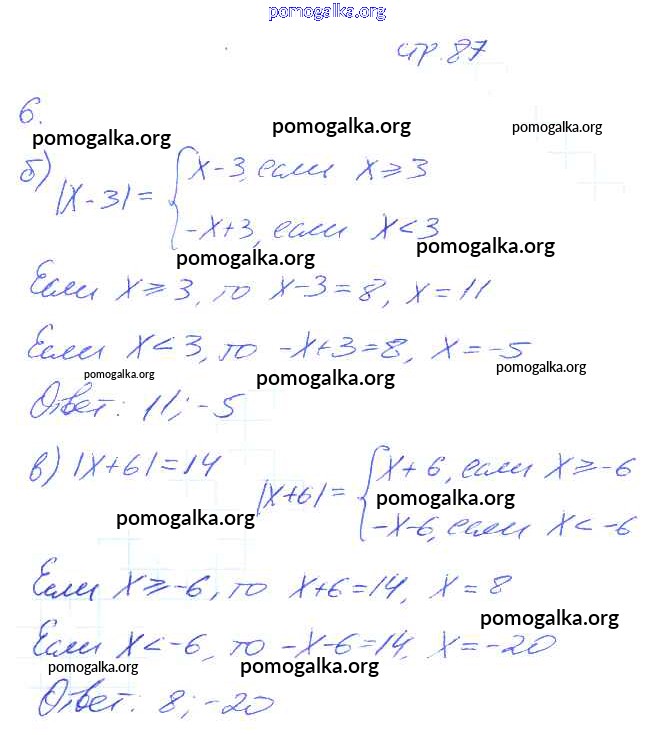 pomogalka.org
стр. 87
6.
pomogalka.org pomogalka.org pomogalka.org
б) |x-3| = { x-3, если x ⩾ 3
-x+3, если x < 3
pomogalka.org pomogalka.org
Если x ⩾ 3, то x-3=8, x=11
Если x < 3, то -x+3=8, x=-5
pomogalka.org pomogalka.org pomogalka.org
Ответ: 11; -5
в) |x+6|=14 |x+6|= { x+6, если x ⩾ -6
pomogalka.org pomogalka.org
-x-6, если x < -6
Если x ⩾ -6, то x+6=14, x=8
pomogalka.org
Если x < -6, то -x-6=14, x=-20
pomogalka.org pomogalka.org
Ответ: 8; -20